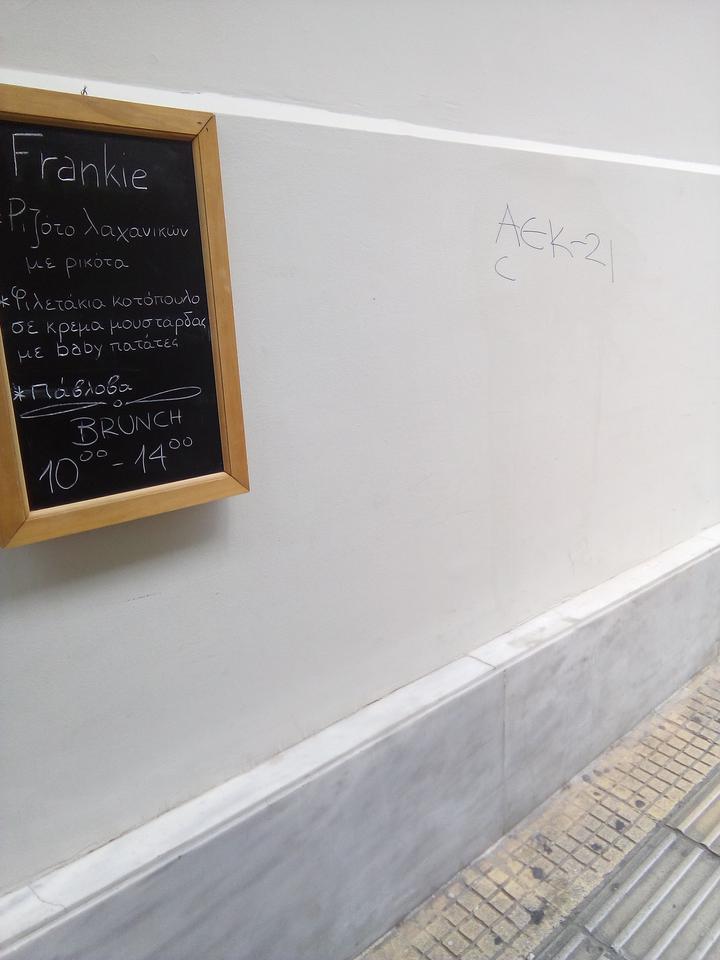 Frankie
*Ριζότο λαχανικών
με ρικότα
*Φιλετάκια κοτόπουλο
σε κρεμα μουσταρδας
με baby πατάτες
*Πάβλοβα
BRUNCH
10⁰⁰ - 14⁰⁰
ΑΕΚ-21
C